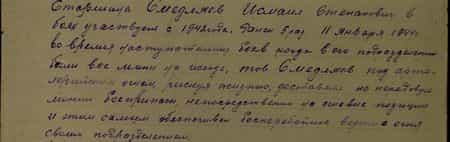 Старшина Смедляев Исмаил Степанович в
боях участвует с 1942 года. Ранен 5 раз 11 января 1944 г.
во время наступательных боев когда в его подразделении
были все мины на исходе, тов Смедляев под
огнем, рискуя жизнью, доставлял на
мины боеприпасы, непосредственно на огневые позиции
и этим самым обеспечивал бесперебойное ведение огня
своим подразделением.